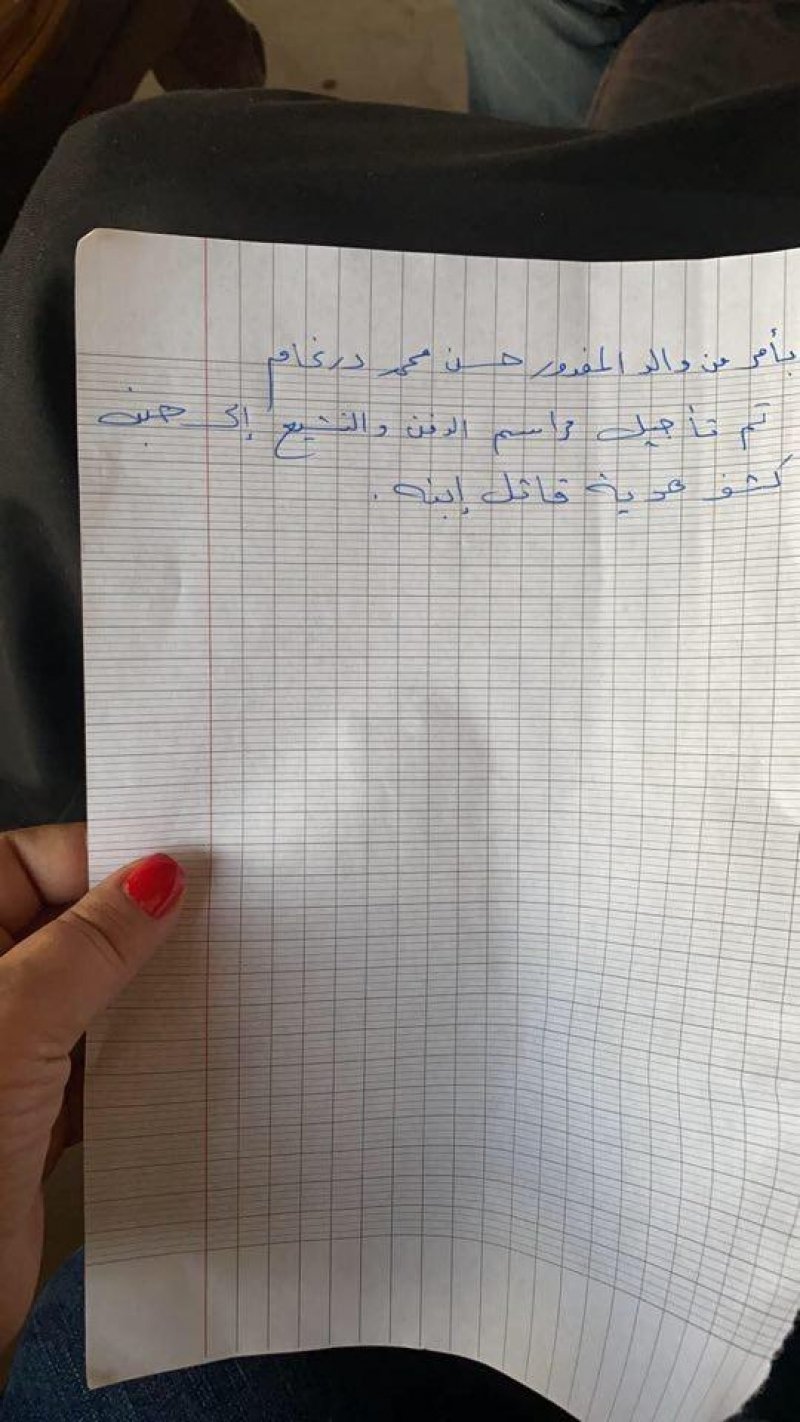 بأمر من والد المغدور حسن محمد درغام
تم تأجيل مراسم الدفن والتشيع إلى حين
كشف هوية قاتل إبنه .